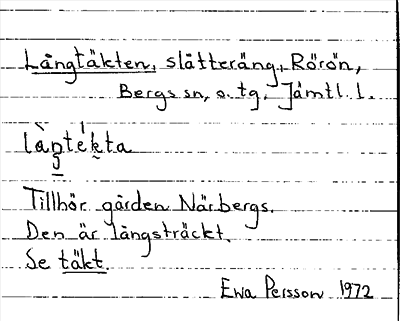 Långtäkten, slåtteräng, Rörön,
Bergs sn, s. tg, Jämtl. l.
làŋték̬ta
Tillhör gården Närbergs.
Den är långsträckt.
Se täkt.
Ewa Persson 1972